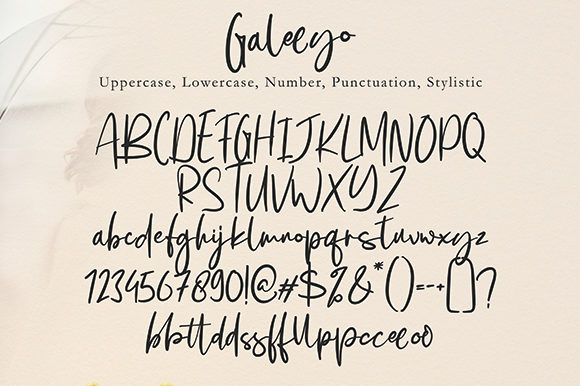 Galeeyo
Uppercase, Lowercase, Number, Punctuation, Stylistic
ABCDEFGHIJKLMNOPQ
RSTUVWXYZ
abcdefghijklmnopqrstuvwxyz
1234567890!@#$%&*()=-+[]?
bbttddssffllppcceeoo